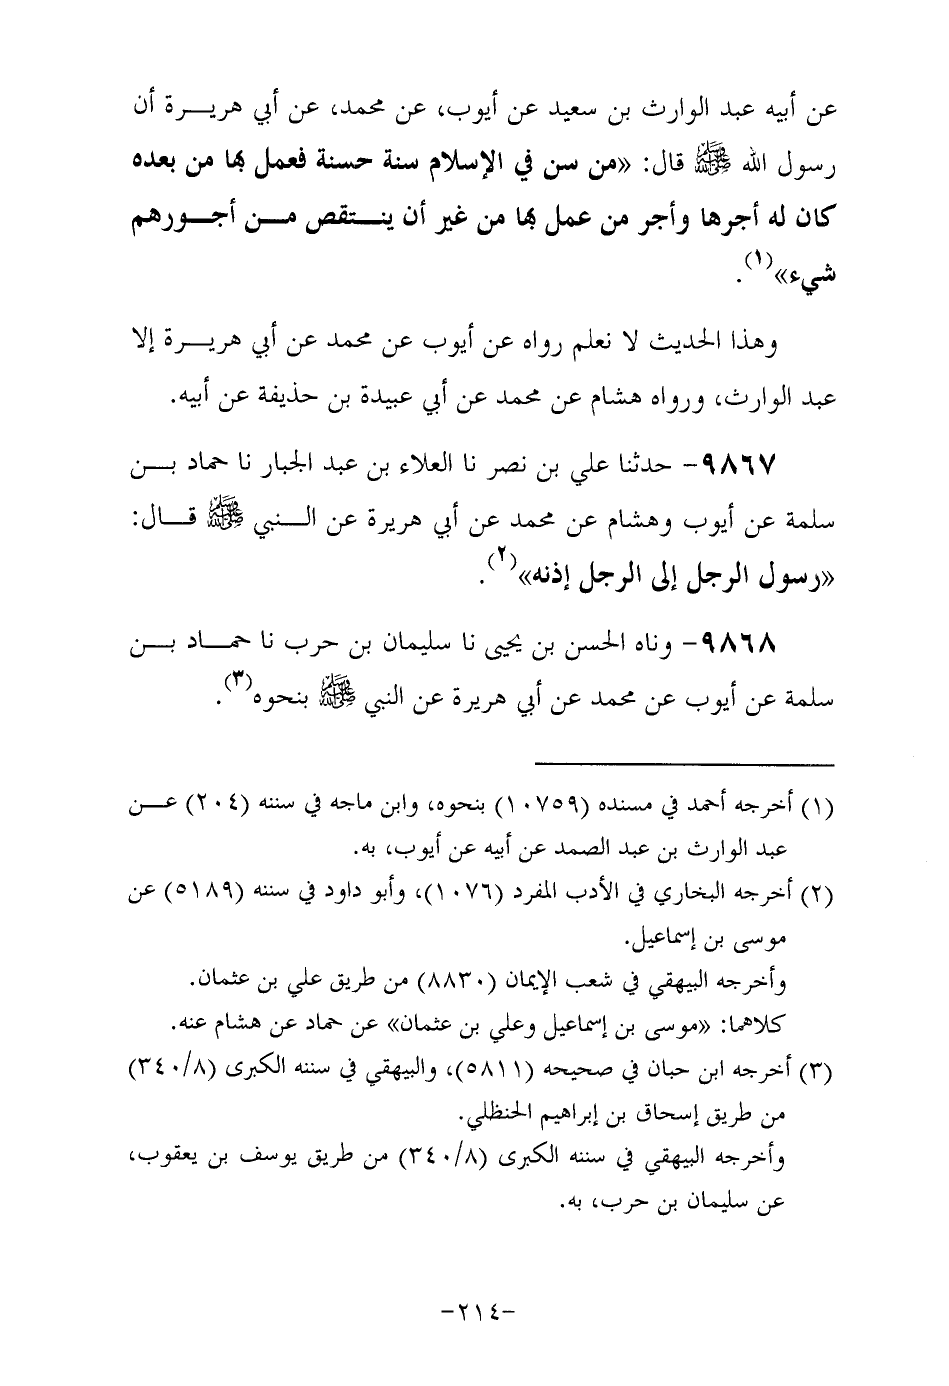 عن أبيه عبد الوارث بن سعيد عن أيوب، عن محمد، عن أبي هريرة أن
رسول الله ﷺ قال: «من سن في الإسلام سنة حسنة فعمل بها من بعده
كان له أجرها وأجر من عمل بها من غير أن ينتقص من أجورهم
شيء»(١).
وهذا الحديث لا نعلم رواه عن أيوب عن محمد عن أبي هريرة إلا
عبد الوارث، ورواه هشام عن محمد عن أبي عبيدة بن حذيفة عن أبيه.
٩٨٦٧- حدثنا علي بن نصر نا العلاء بن عبد الجبار نا حماد بن
سلمة عن أيوب وهشام عن محمد عن أبي هريرة عن النبي ﷺ قال:
«رسول الرجل إلى الرجل إذنه»(٢).
٩٨٦٨- وناه الحسن بن يحيى نا سليمان بن حرب نا حماد بن
سلمة عن أيوب عن محمد عن أبي هريرة عن النبي ﷺ بنحوه(٣).
(١) أخرجه أحمد في مسنده (١٠٧٥٩) بنحوه، وابن ماجه في سننه (٢٠٤) عن
عبد الوارث بن عبد الصمد عن أبيه عن أيوب، به.
(٢) أخرجه البخاري في الأدب المفرد (١٠٧٦)، وأبو داود في سننه (٥١٨٩) عن
موسى بن إسماعيل.
وأخرجه البيهقي في شعب الإيمان (٨٨٣٠) من طريق علي بن عثمان.
كلاهما: «موسى بن إسماعيل وعلي بن عثمان» عن حماد عن هشام عنه.
(٣) أخرجه ابن حبان في صحيحه (٥٨١١)، والبيهقي في سننه الكبرى (٣٤٠/٨)
من طريق إسحاق بن إبراهيم الحنظلي.
وأخرجه البيهقي في سننه الكبرى (٣٤٠/٨) من طريق يوسف بن يعقوب،
عن سليمان بن حرب، به.
-٢١٤-